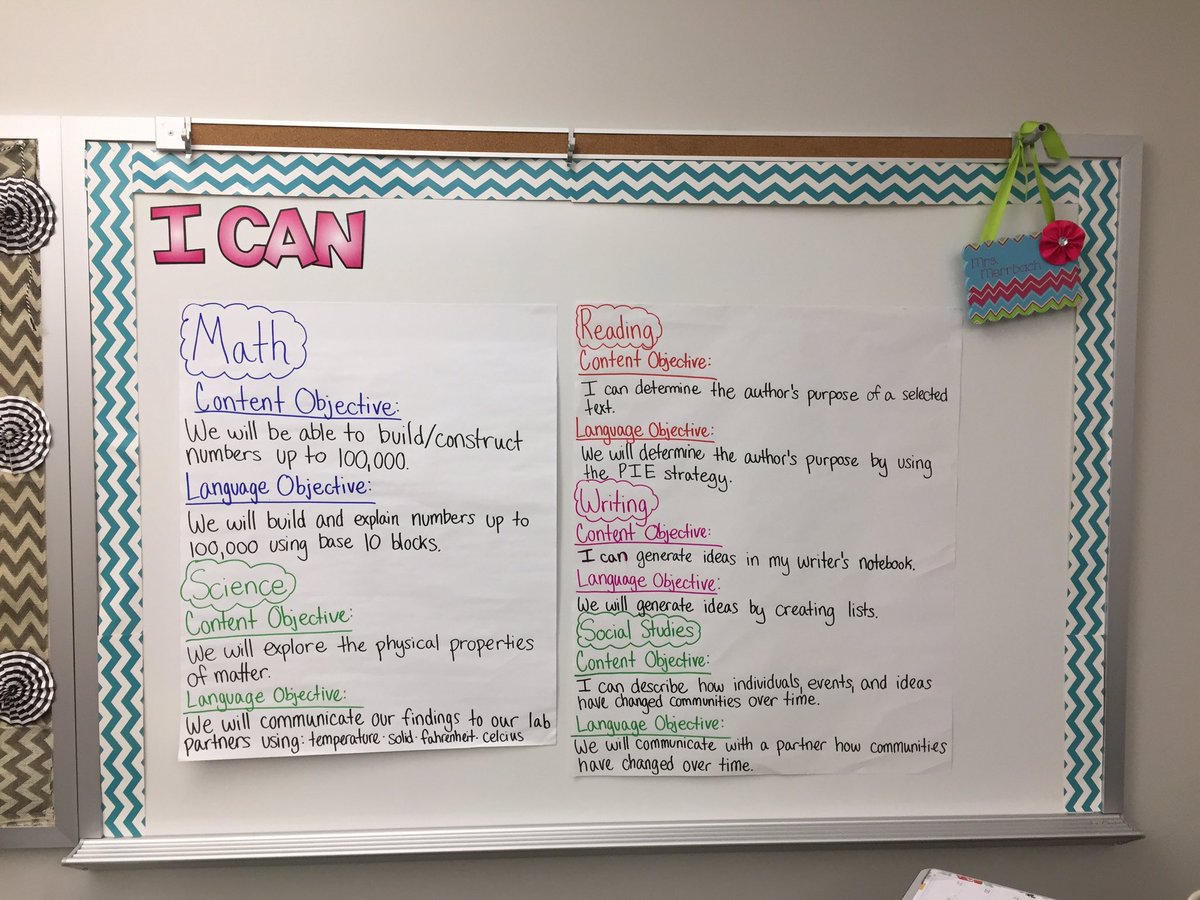 I CAN
Math
Content Objective:
We will be able to build/construct
numbers up to 100,000.
Language Objective:
We will build and explain numbers up to
100,000 using base 10 blocks.
Science
Content Objective:
We will explore the physical properties
of matter.
Language Objective:
We will communicate our findings to our lab
partners using: temperature · solid · fahrenheit · celcius
Reading
Content Objective:
I can determine the author's purpose of a selected
text.
Language Objective:
We will determine the author's purpose by using
the PIE strategy.
Writing
Content Objective:
I can generate ideas in my writer's notebook.
Language Objective:
We will generate ideas by creating lists.
Social Studies
Content Objective:
I can describe how individuals, events, and ideas
have changed communities over time.
Language Objective:
We will communicate with a partner how communities
have changed over time.
Mrs.
Merrbach